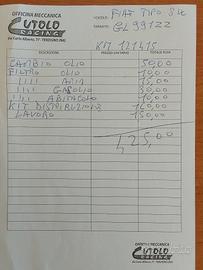 OFFICINA MECCANICA
CUTOLO
RACING
Via Carlo Alberto, 77 - TERZIGNO (NA)
VEICOLO: FIAT TIPO SW
TARGATO: GL 99122
KM 121415
DESCRIZIONE PREZZO UNITARIO TOTALE EURO
CAMBIO OLIO 50,00
FILTRO OLIO 10,00
//// ARIA 15,00
//// GASOLIO 30,00
//// ABITACOLO 10,00
KIT DISTRIBUZIONE 160,00
LAVORO 150,00
425,00
OFFICINA MECCANICA
CUTOLO
RACING